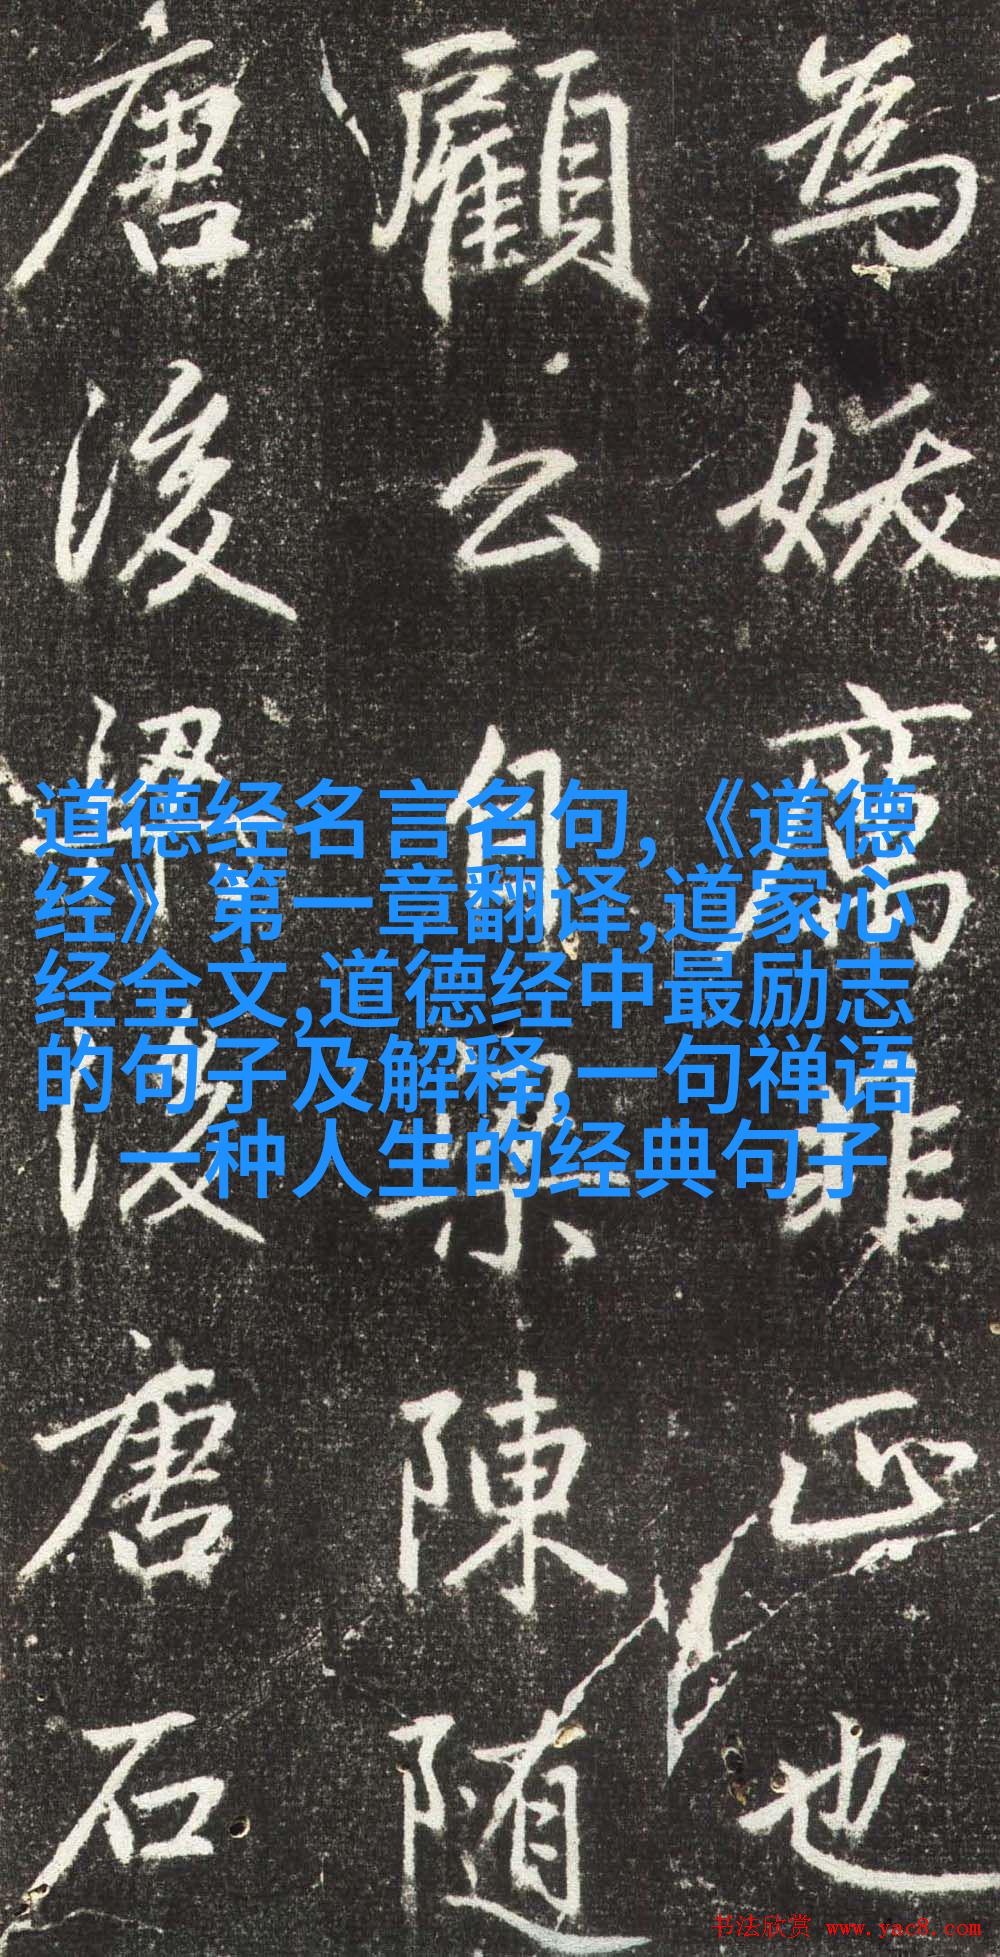 為妖厲非正也
顧公自梁陳隨
唐後後唐石
道德经名言名句,《道德
经》第一章翻译,道家心
经全文,道德经中最励志
的句子及解释,一句禅语
一种人生的经典句子
书法欣赏 www.yac8.com